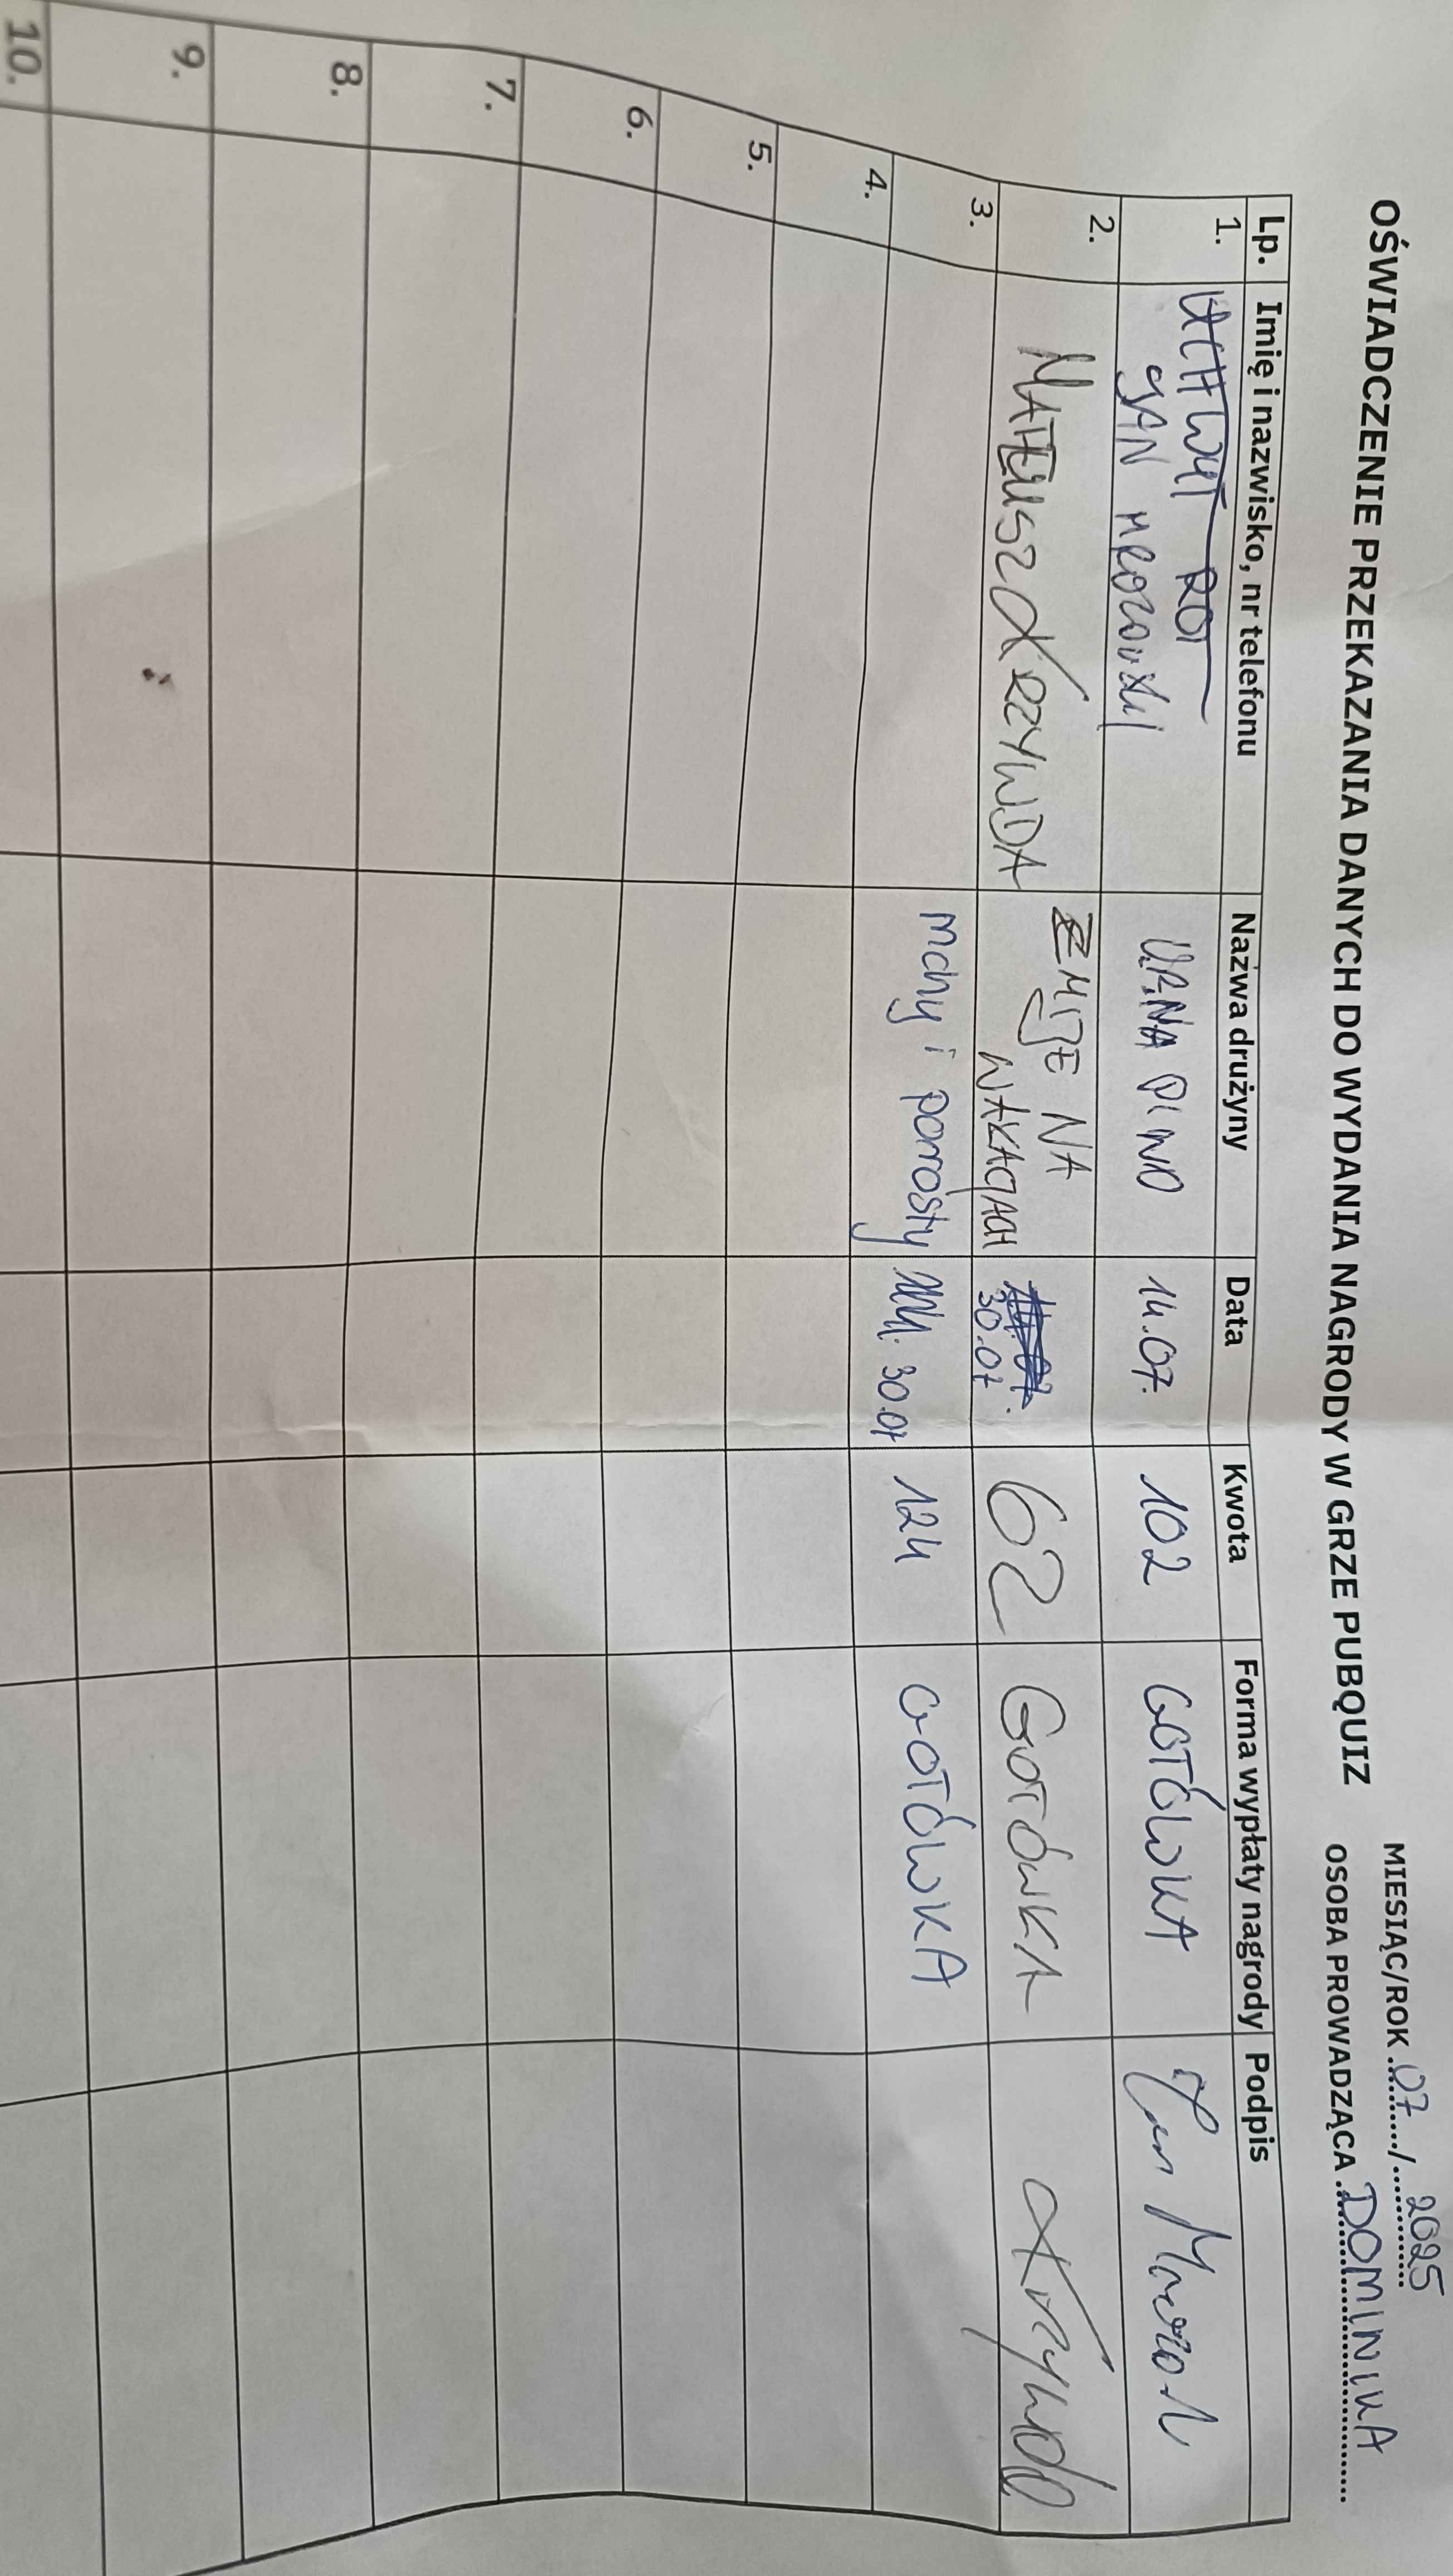 OŚWIADCZENIE PRZEKAZANIA DANYCH DO WYDANIA NAGRODY W GRZE PUBQUIZ
MIESIĄC/ROK 07 / 2025
OSOBA PROWADZĄCA DOMINIKA
Lp. Imię i nazwisko, nr telefonu Nazwa drużyny Data Kwota Forma wypłaty nagrody Podpis
1. UCHWYT ROT
JAN URINA PINO 14.07. 102 GOTÓWKA Jan
2. MATEUSZ KRZYWDA ŻMIJE NA
WAKACJACH 30.07. 62 GOTÓWKA Krzywda
3. mchy i porosty 30.07 124 GOTÓWKA
4.
5.
6.
7.
8.
9.
10.